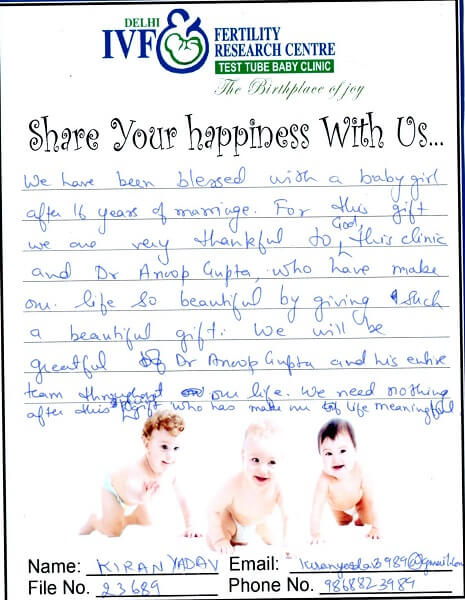 DELHI
IVF & FERTILITY
RESEARCH CENTRE
TEST TUBE BABY CLINIC
The Birthplace of joy
Share Your happiness With Us...
We have been blessed with a baby girl
after 16 years of marriage. For this gift
we are very thankful to God, this clinic
and Dr Anoop Gupta, who have make
our life so beautiful by giving such
a beautiful gift. We will be
greatful Dr Anoop Gupta and his entire
team throughout our life. We need nothing
after this gift who has make our life meaningful
Name: KIRAN YADAV Email: kiranyadav8989@gmail.com
File No. 23689 Phone No. 9868823989